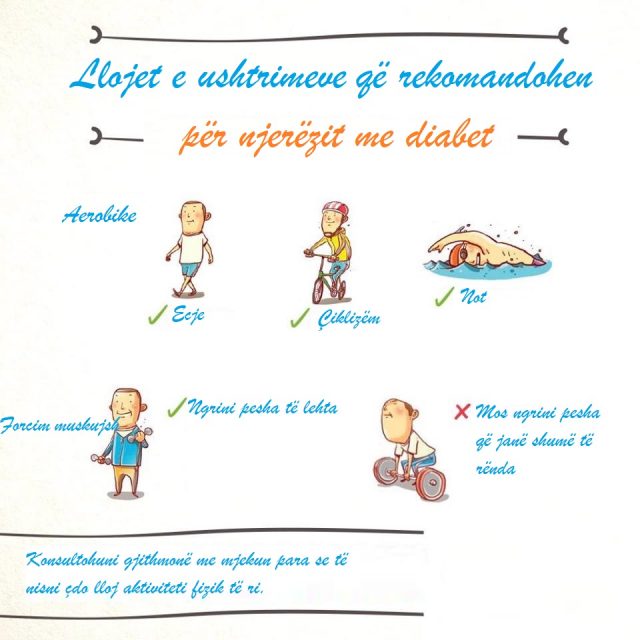 Llojet e ushtrimeve që rekomandohen
për njerëzit me diabet
Aerobike
Ecje
Çiklizëm
Not
Forcim muskujsh
Ngrini pesha të lehta
Mos ngrini pesha
që janë shumë të
rënda
Konsultohuni gjithmonë me mjekun para se të
nisni çdo lloj aktiviteti fizik të ri.